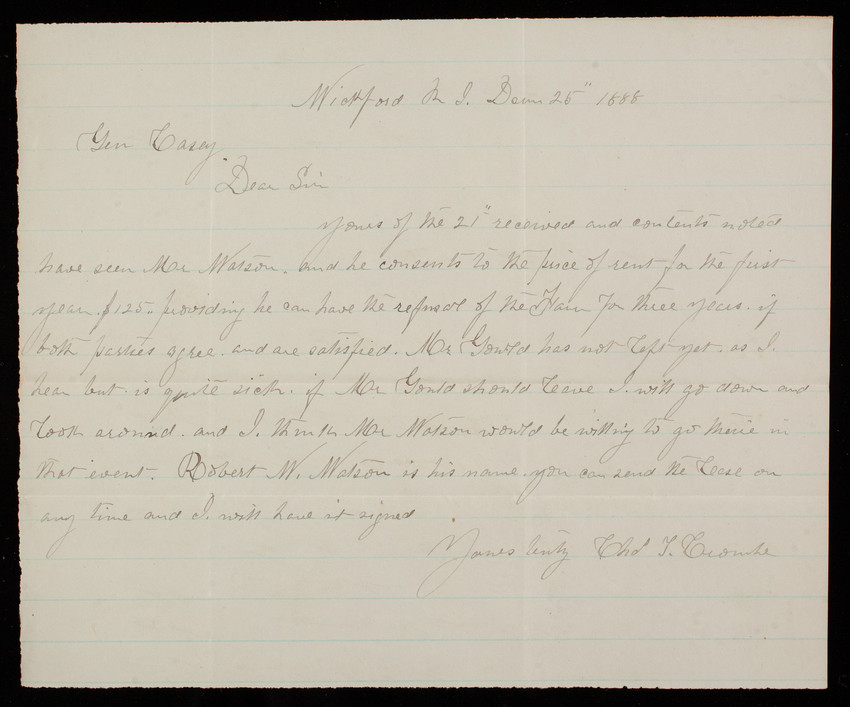 Wickford R I. Decm 25" 1888
Gen Casey
Dear Sir
Yours of the 21" received and contents noted
have seen Mr Watson. and he consents to the price of rent for the first
year. $125. providing he can have the refusal of the Farm for three years. if
both parties agree. and are satisfied. Mr Gould has not left yet. as I.
hear but. is quite sick. if Mr Gould should leave I. will go down and
look around. and I. think Mr Watson would be willing to go there in
that event. Robert W. Watson is his name. you can send the lease on
any time and I. will have it signed
Yours truly Thos T.